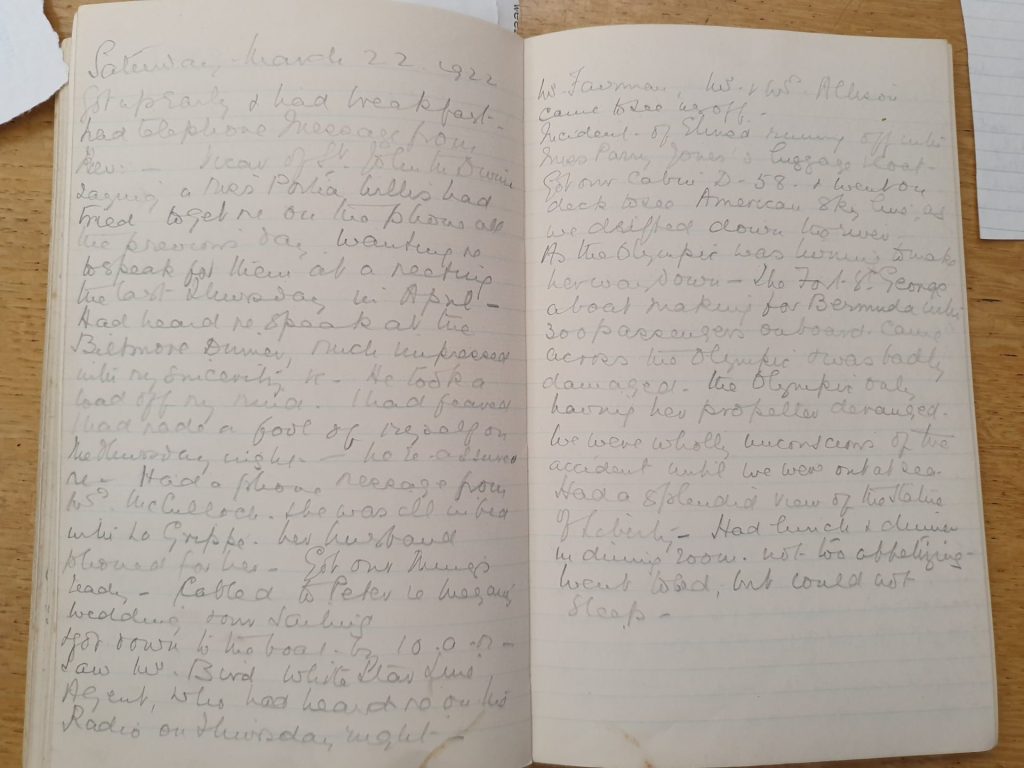 Saturday March 22. 1922
Got up Early & had breakfast -
had telephone Message from
Rev: - Vicar of St. John the Divine
saying a Miss Portia Willis had
tried to get me on the phone all
the previous day wanting me
to speak for them at a meeting
the last Thursday in April -
Had heard me speak at the
Biltmore Dinner, much impressed
with my sincerity &c - He took a
load off my mind. I had feared
I had made a fool of myself on
the Thursday night - he re-assured
me - Had a phone message from
Mrs McCulloch. She was ill in bed
with La Grippe. her husband
phoned for her - Got our things
ready - Cabled to Peter re
wedding our Sailing
Got down to the boat by 10 a.m -
Saw Mr. Bird White Star Line
Agent, who had heard me on his
Radio on Thursday night -
Mr. & Mrs Allison
came to see us off -
Incident of running off with
Miss Parry Jones's luggage & coat -
Got our Cabin D-58. & went on
deck to see American Sky line, as
we drifted down the river -
As the Olympic was turning to make
her way down - The Fort St. George
a boat making for Bermuda with
300 passengers onboard came
across the Olympic & was badly
damaged. the Olympic only
having her propeller deranged.
We were wholly unconscious of the
accident until we were out at sea
Had a splendid view of the Statue
of Liberty - Had lunch & dinner
in dining room. not too appetizing -
Went to bed, but could not
Sleep -